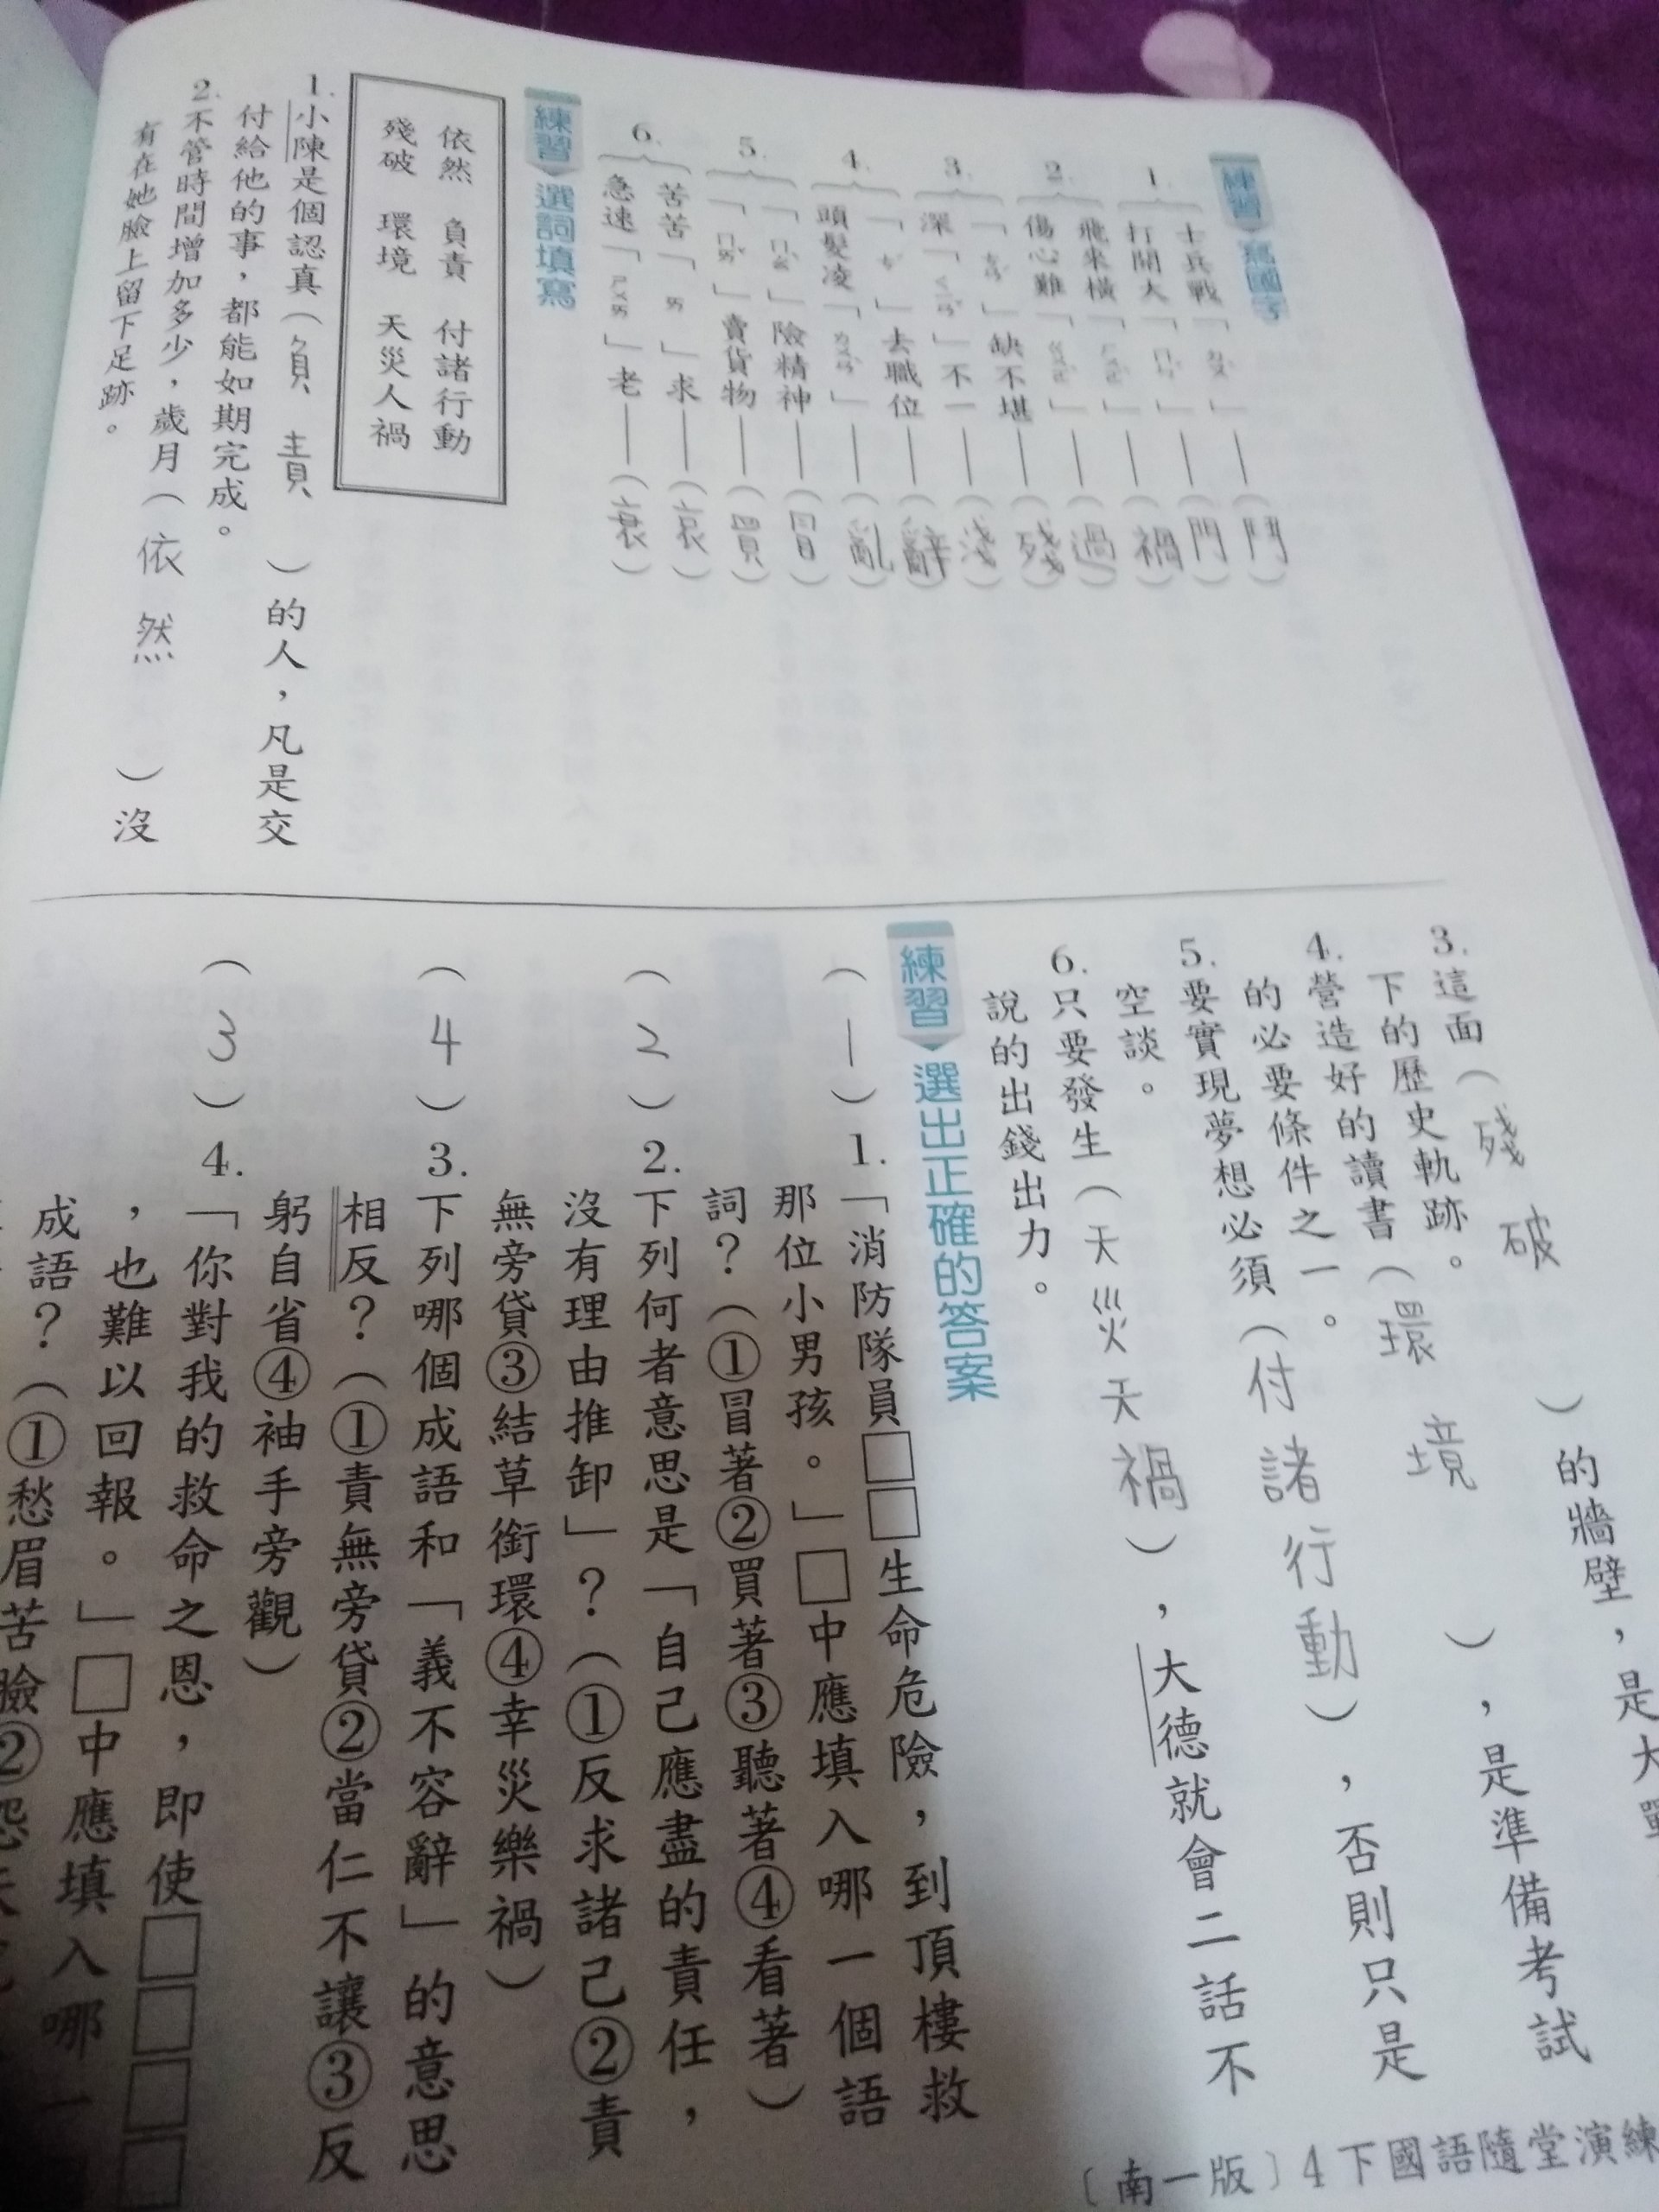 練習 寫國字
1. 士兵戰「ㄉㄡˋ」——(鬥)
打開大「ㄇㄣˊ」——(門)
2. 飛來橫「ㄏㄨㄛˋ」——(禍)
傷心難「ㄍㄨㄛˋ」——(過)
3. 「ㄘㄢˊ」缺不堪——(殘)
深「ㄑㄧㄢˇ」不一——(淺)
4. 「ㄘˊ」去職位——(辭)
頭髮凌「ㄌㄨㄢˋ」——(亂)
5. 「ㄇㄠˋ」險精神——(冒)
「ㄇㄞˇ」賣貨物——(買)
6. 苦苦「ㄞ」求——(哀)
急速「ㄕㄨㄞ」老——(衰)
練習 選詞填寫
依然 負責 付諸行動
殘破 環境 天災人禍
1. 小陳是個認真(負責)的人,凡是交
付給他的事,都能如期完成。
2. 不管時間增加多少,歲月(依然)沒
有在她臉上留下足跡。
3. 這面(殘破)的牆壁,是大戰
下的歷史軌跡。
4. 營造好的讀書(環境),是準備考試
的必要條件之一。
5. 要實現夢想必須(付諸行動),否則只是
空談。
6. 只要發生(天災天禍),大德就會二話不
說的出錢出力。
練習 選出正確的答案
(1)1. 「消防隊員□□生命危險,到頂樓救
那位小男孩。」□中應填入哪一個語
詞?(①冒著②買著③聽著④看著)
(2)2. 下列何者意思是「自己應盡的責任,
沒有理由推卸」?(①反求諸己②責
無旁貸③結草銜環④幸災樂禍)
(4)3. 下列哪個成語和「義不容辭」的意思
相反?(①責無旁貸②當仁不讓③反
躬自省④袖手旁觀)
(3)4. 「你對我的救命之恩,即使□□□□
,也難以回報。」□中應填入哪一
成語?(①愁眉苦臉②怨天
〔南一版〕4下國語隨堂演練